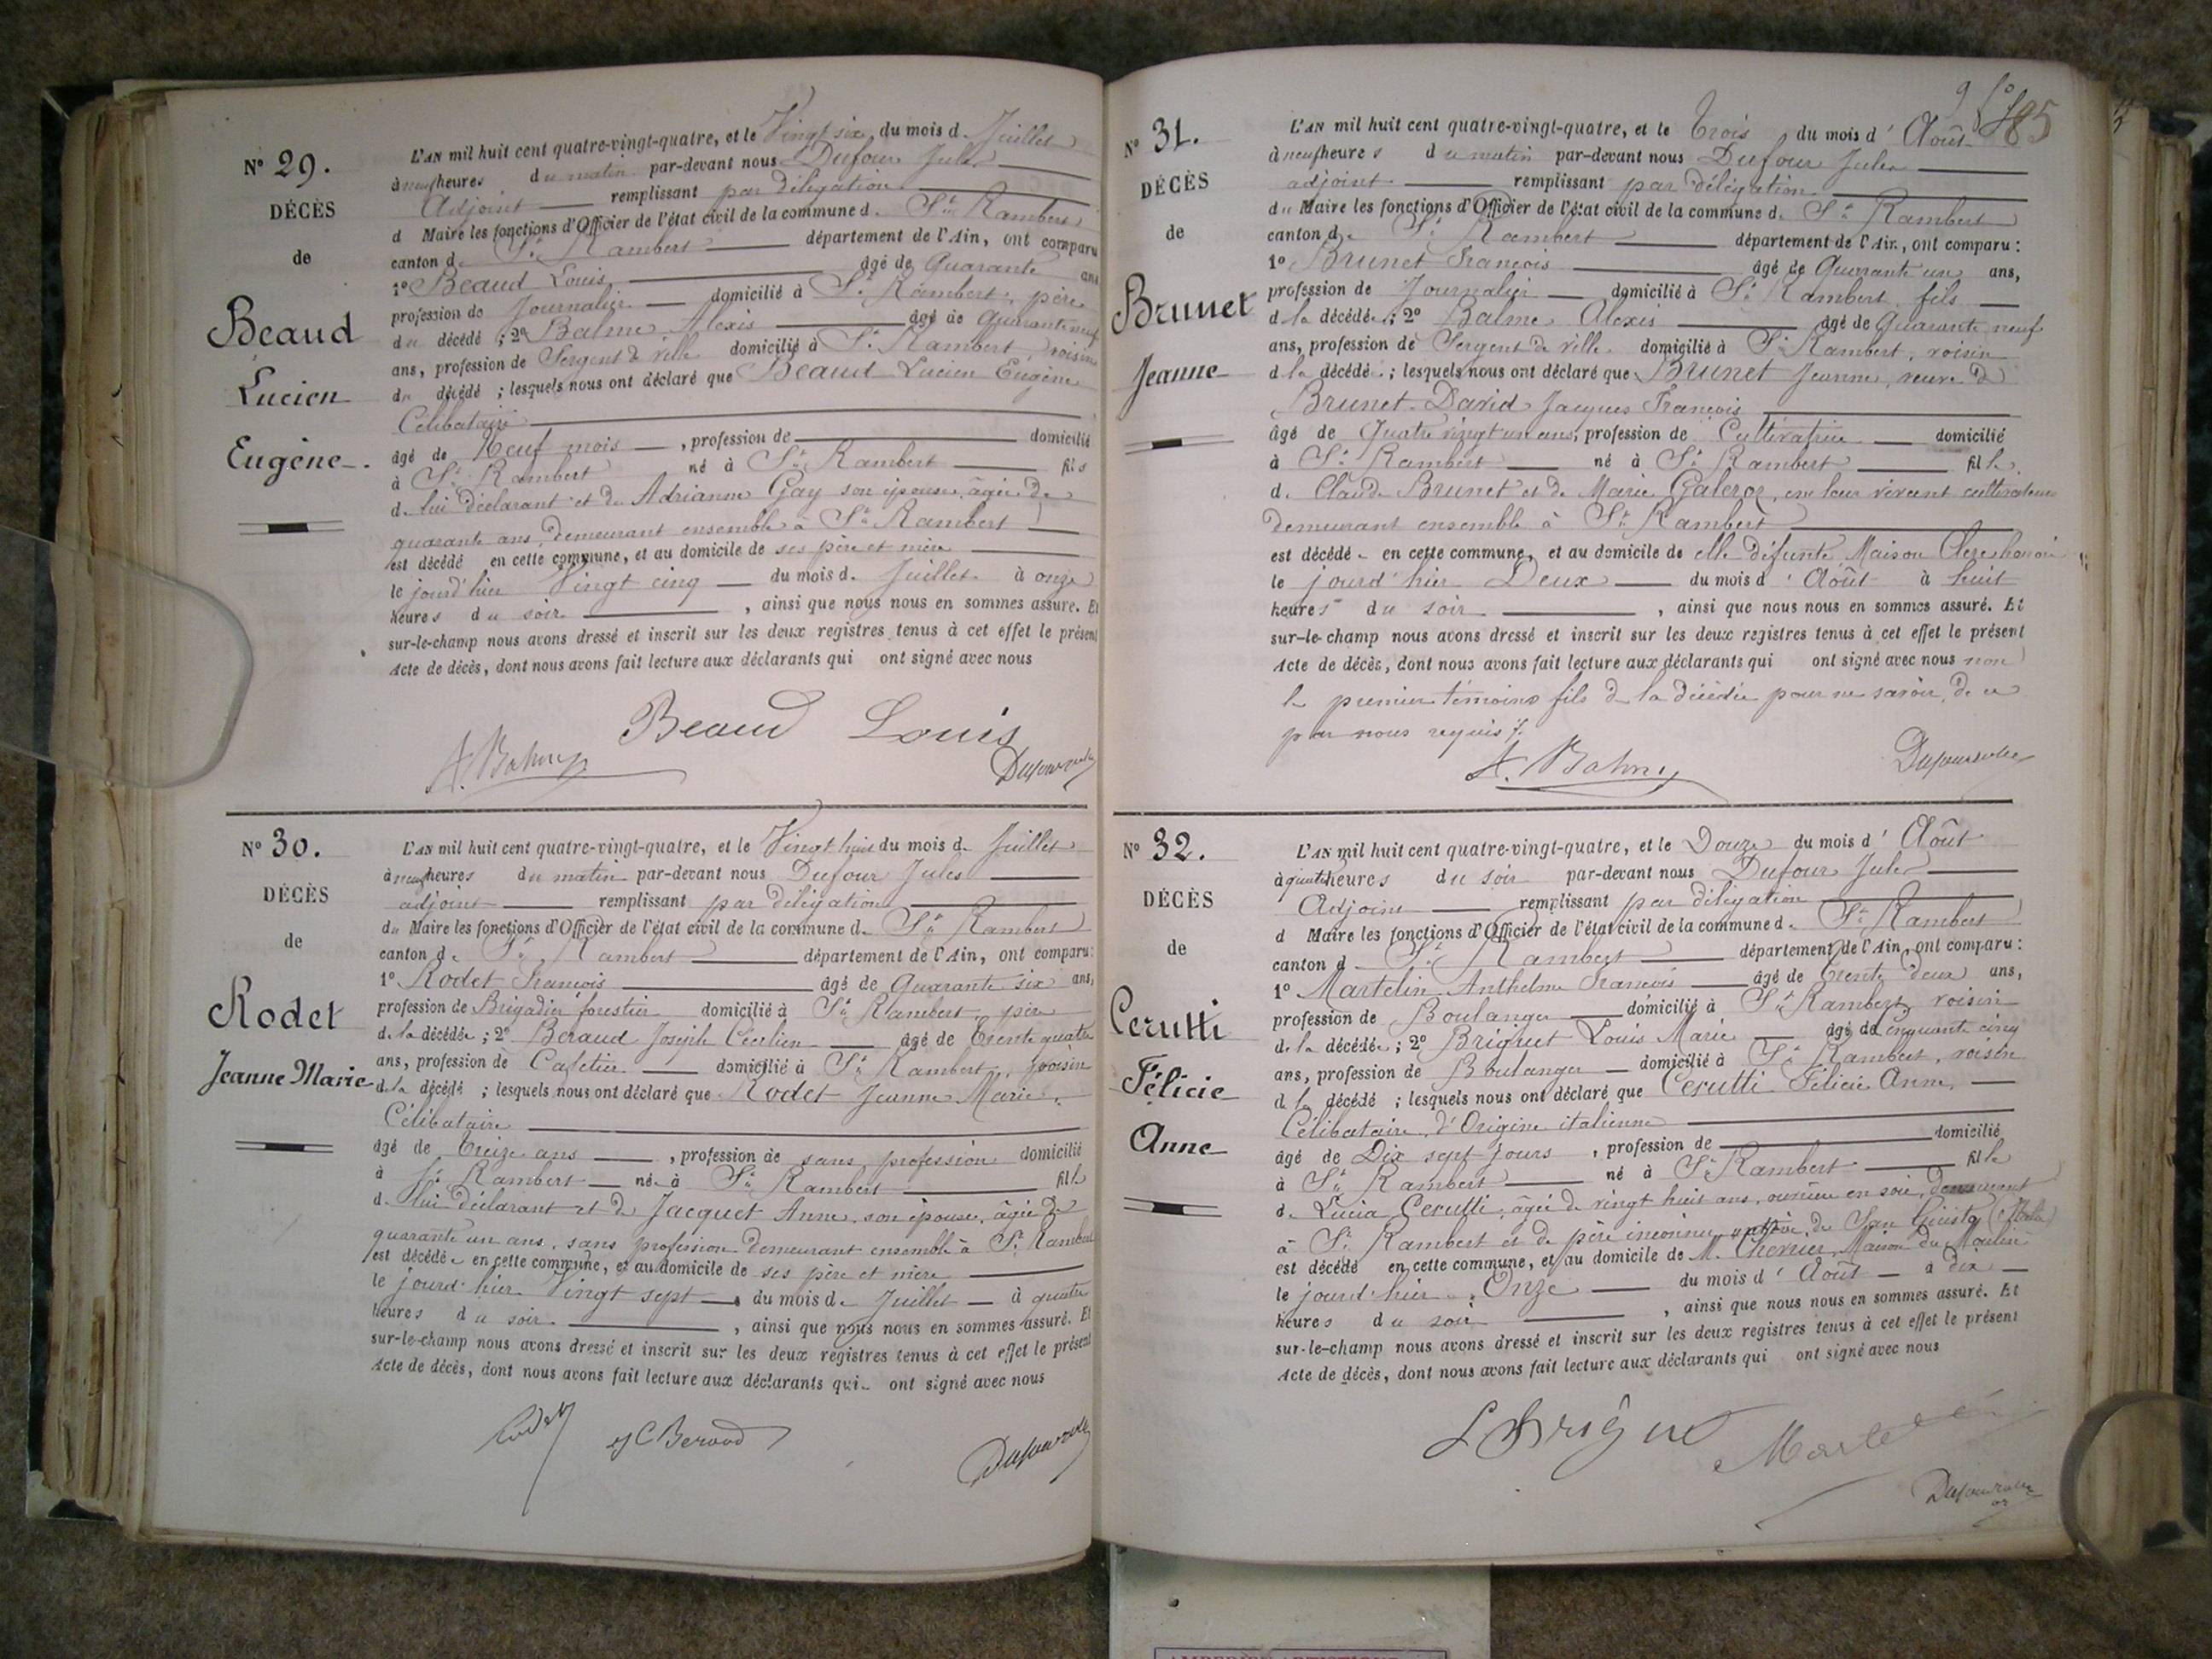 N° 29.
DÉCÈS
de
Beaud
Lucien
Eugène.
L'AN mil huit cent quatre-vingt-quatre, et le Vingt six du mois d. Juillet
à neuf heures du matin par-devant nous Dufour Jules
Adjoint remplissant par délégation
d Maire les fonctions d'Officier de l'état civil de la commune d. St Rambert
canton d. St Rambert département de l'Ain, ont comparu
1° Beaud Louis âgé de Quarante ans
profession de Journalier domicilié à St Rambert, père
du décédé ; 2° Balme Alexis âgé de Quarante neuf
ans, profession de Sergent de ville domicilié à St Rambert, voisin
du décédé ; lesquels nous ont déclaré que Beaud Lucien Eugène
Célibataire
âgé de Neuf mois, profession de domicilié
à St Rambert né à St Rambert fils
de lui déclarant et de Adrianne Gay son épouse, âgée de
quarante ans, demeurant ensemble à St Rambert
est décédé en cette commune, et au domicile de ses père et mère
le jourd'hier Vingt cinq du mois d. Juillet à onze
heures du soir, ainsi que nous nous en sommes assuré. Et
sur-le-champ nous avons dressé et inscrit sur les deux registres tenus à cet effet le présent
Acte de décès, dont nous avons fait lecture aux déclarants qui ont signé avec nous
Beaud Louis
N° 30.
DÉCÈS
de
Rodet
Jeanne Marie
L'AN mil huit cent quatre-vingt-quatre, et le Vingt huit du mois d. Juillet
à neuf heures du matin par-devant nous Dufour Jules
adjoint remplissant par délégation
du Maire les fonctions d'Officier de l'état civil de la commune d. St Rambert
canton d. St Rambert département de l'Ain, ont comparu:
1° Rodet François âgé de Quarante six ans,
profession de Brigadier forestier domicilié à St Rambert, père
de la décédée ; 2° Beraud Joseph âgé de Trente quatre
ans, profession de Cafetier domicilié à St Rambert, voisin
de la décédé ; lesquels nous ont déclaré que Rodet Jeanne Marie,
Célibataire
âgé de Treize ans, profession de sans profession domicilié
à St Rambert né à St Rambert fille
de lui déclarant et de Jacquet Anne, son épouse, âgée de
quarante un ans, sans profession demeurant ensemble à St Rambert
est décédée en cette commune, et au domicile de ses père et mère
le jourd'hier Vingt sept du mois de Juillet à quatre
heures du soir, ainsi que nous nous en sommes assuré. Et
sur-le-champ nous avons dressé et inscrit sur les deux registres tenus à cet effet le présent
Acte de décès, dont nous avons fait lecture aux déclarants qui ont signé avec nous
N° 31.
DÉCÈS
de
Brunet
Jeanne
L'AN mil huit cent quatre-vingt-quatre, et le Trois du mois d'Août
à neuf heures du matin par-devant nous Dufour Jules
adjoint remplissant par délégation
du Maire les fonctions d'Officier de l'état civil de la commune d. St Rambert
canton d. St Rambert département de l'Ain, ont comparu:
1° Brunet François âgé de Quarante un ans,
profession de Journalier domicilié à St Rambert, fils
de la décédée ; 2° Balme Alexis âgé de Quarante neuf
ans, profession de Sergent de ville domicilié à St Rambert, voisin
de la décédé ; lesquels nous ont déclaré que Brunet Jeanne, veuve de
Brunet-David Jacques François
âgé de Quatre vingt un ans, profession de Cultivatrice domicilié
à St Rambert né à St Rambert fille
de Claude Brunet et de Marie en leur vivant cultivateurs
demeurant ensemble à St Rambert
est décédée en cette commune, et au domicile de elle défunte, Maison
le jourd'hier Deux du mois d'Août à huit
heures du soir, ainsi que nous nous en sommes assuré. Et
sur-le-champ nous avons dressé et inscrit sur les deux registres tenus à cet effet le présent
Acte de décès, dont nous avons fait lecture aux déclarants qui ont signé avec nous non
le premier témoins fils de la décédée pour ne savoir, de ce
par nous requis
N° 32.
DÉCÈS
de
Cerutti
Félicie
Anne
L'AN mil huit cent quatre-vingt-quatre, et le Douze du mois d'Août
à quatre heures du soir par-devant nous Dufour Jules
Adjoint remplissant par délégation
d Maire les fonctions d'Officier de l'état civil de la commune d. St Rambert
canton d St Rambert département de l'Ain, ont comparu:
1° Martelin Anthelme François âgé de Trente deux ans,
profession de Boulanger domicilié à St Rambert, voisin
de la décédée ; 2° Louis Marie âgé de Cinquante cinq
ans, profession de Boulanger domicilié à St Rambert, voisin
de la décédé ; lesquels nous ont déclaré que Cerutti Félicie Anne,
Célibataire, d'Origine italienne
âgé de Dix sept Jours, profession de domicilié
à St Rambert né à St Rambert fille
de Lucia Cerutti, âgée de vingt huit ans, ouvrière en soie, demeurant
à St Rambert et de père inconnu, de San Giusto
est décédé en cette commune, et au domicile de M. Chevrier, Maison du Moulin
le jourd'hier Onze du mois d'Août à dix
heures du soir, ainsi que nous nous en sommes assuré. Et
sur-le-champ nous avons dressé et inscrit sur les deux registres tenus à cet effet le présent
Acte de décès, dont nous avons fait lecture aux déclarants qui ont signé avec nous